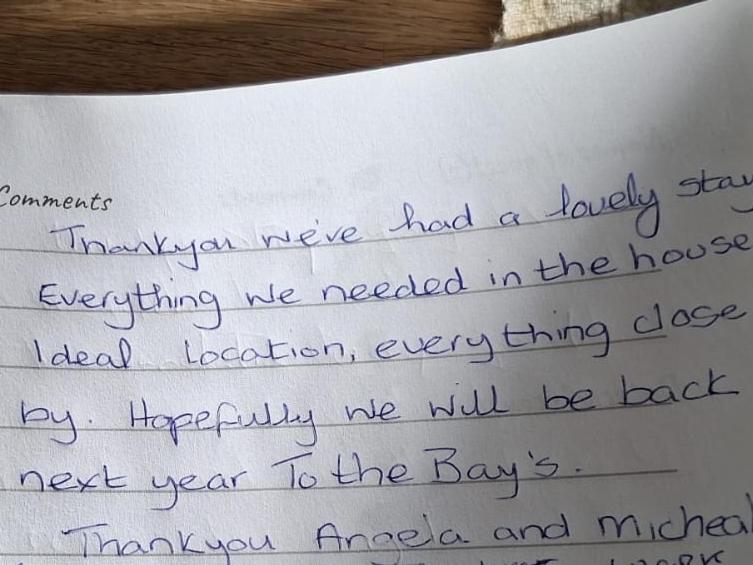 Comments
Thankyou we've had a lovely stay
Everything we needed in the house
Ideal Location, everything close
by. Hopefully we will be back
next year To the Bay's.
Thankyou Angela and micheal